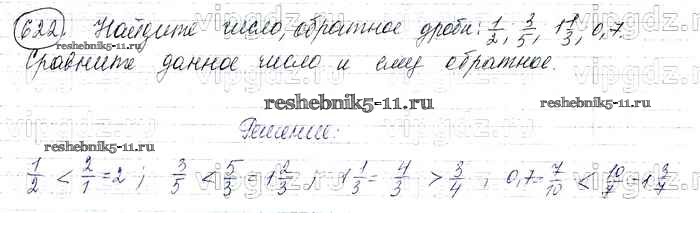 622. Найдите число, обратное дроби: 1/2; 3/5; 1 1/3; 0,7.
reshebnik5-11.ru
Сравните данное число и ему обратное.
vipgdz.ru vipgdz.ru vipgdz.ru
reshebnik5-11.ru reshebnik5-11.ru
Решение:
reshebnik5-11.ru
1/2 < 2/1 = 2; 3/5 < 5/3 = 1 2/3; 1 1/3 = 4/3 > 3/4; 0,7 = 7/10 < 10/7 = 1 3/7
reshebnik5-11.ru